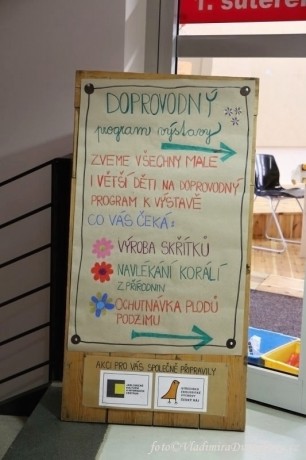 1. suterén
DOPROVODNÝ
program výstavy
ZVEME VŠECHNY MALÉ
I VĚTŠÍ DĚTI NA DOPROVODNÝ
PROGRAM K VÝSTAVĚ
CO VÁS ČEKÁ:
VÝROBA SKŘÍTKŮ
NAVLÉKÁNÍ KORÁLÍ
Z PŘÍRODNIN
OCHUTNÁVKA PLODŮ
PODZIMU
AKCI PRO VÁS SPOLEČNĚ PŘIPRAVILY